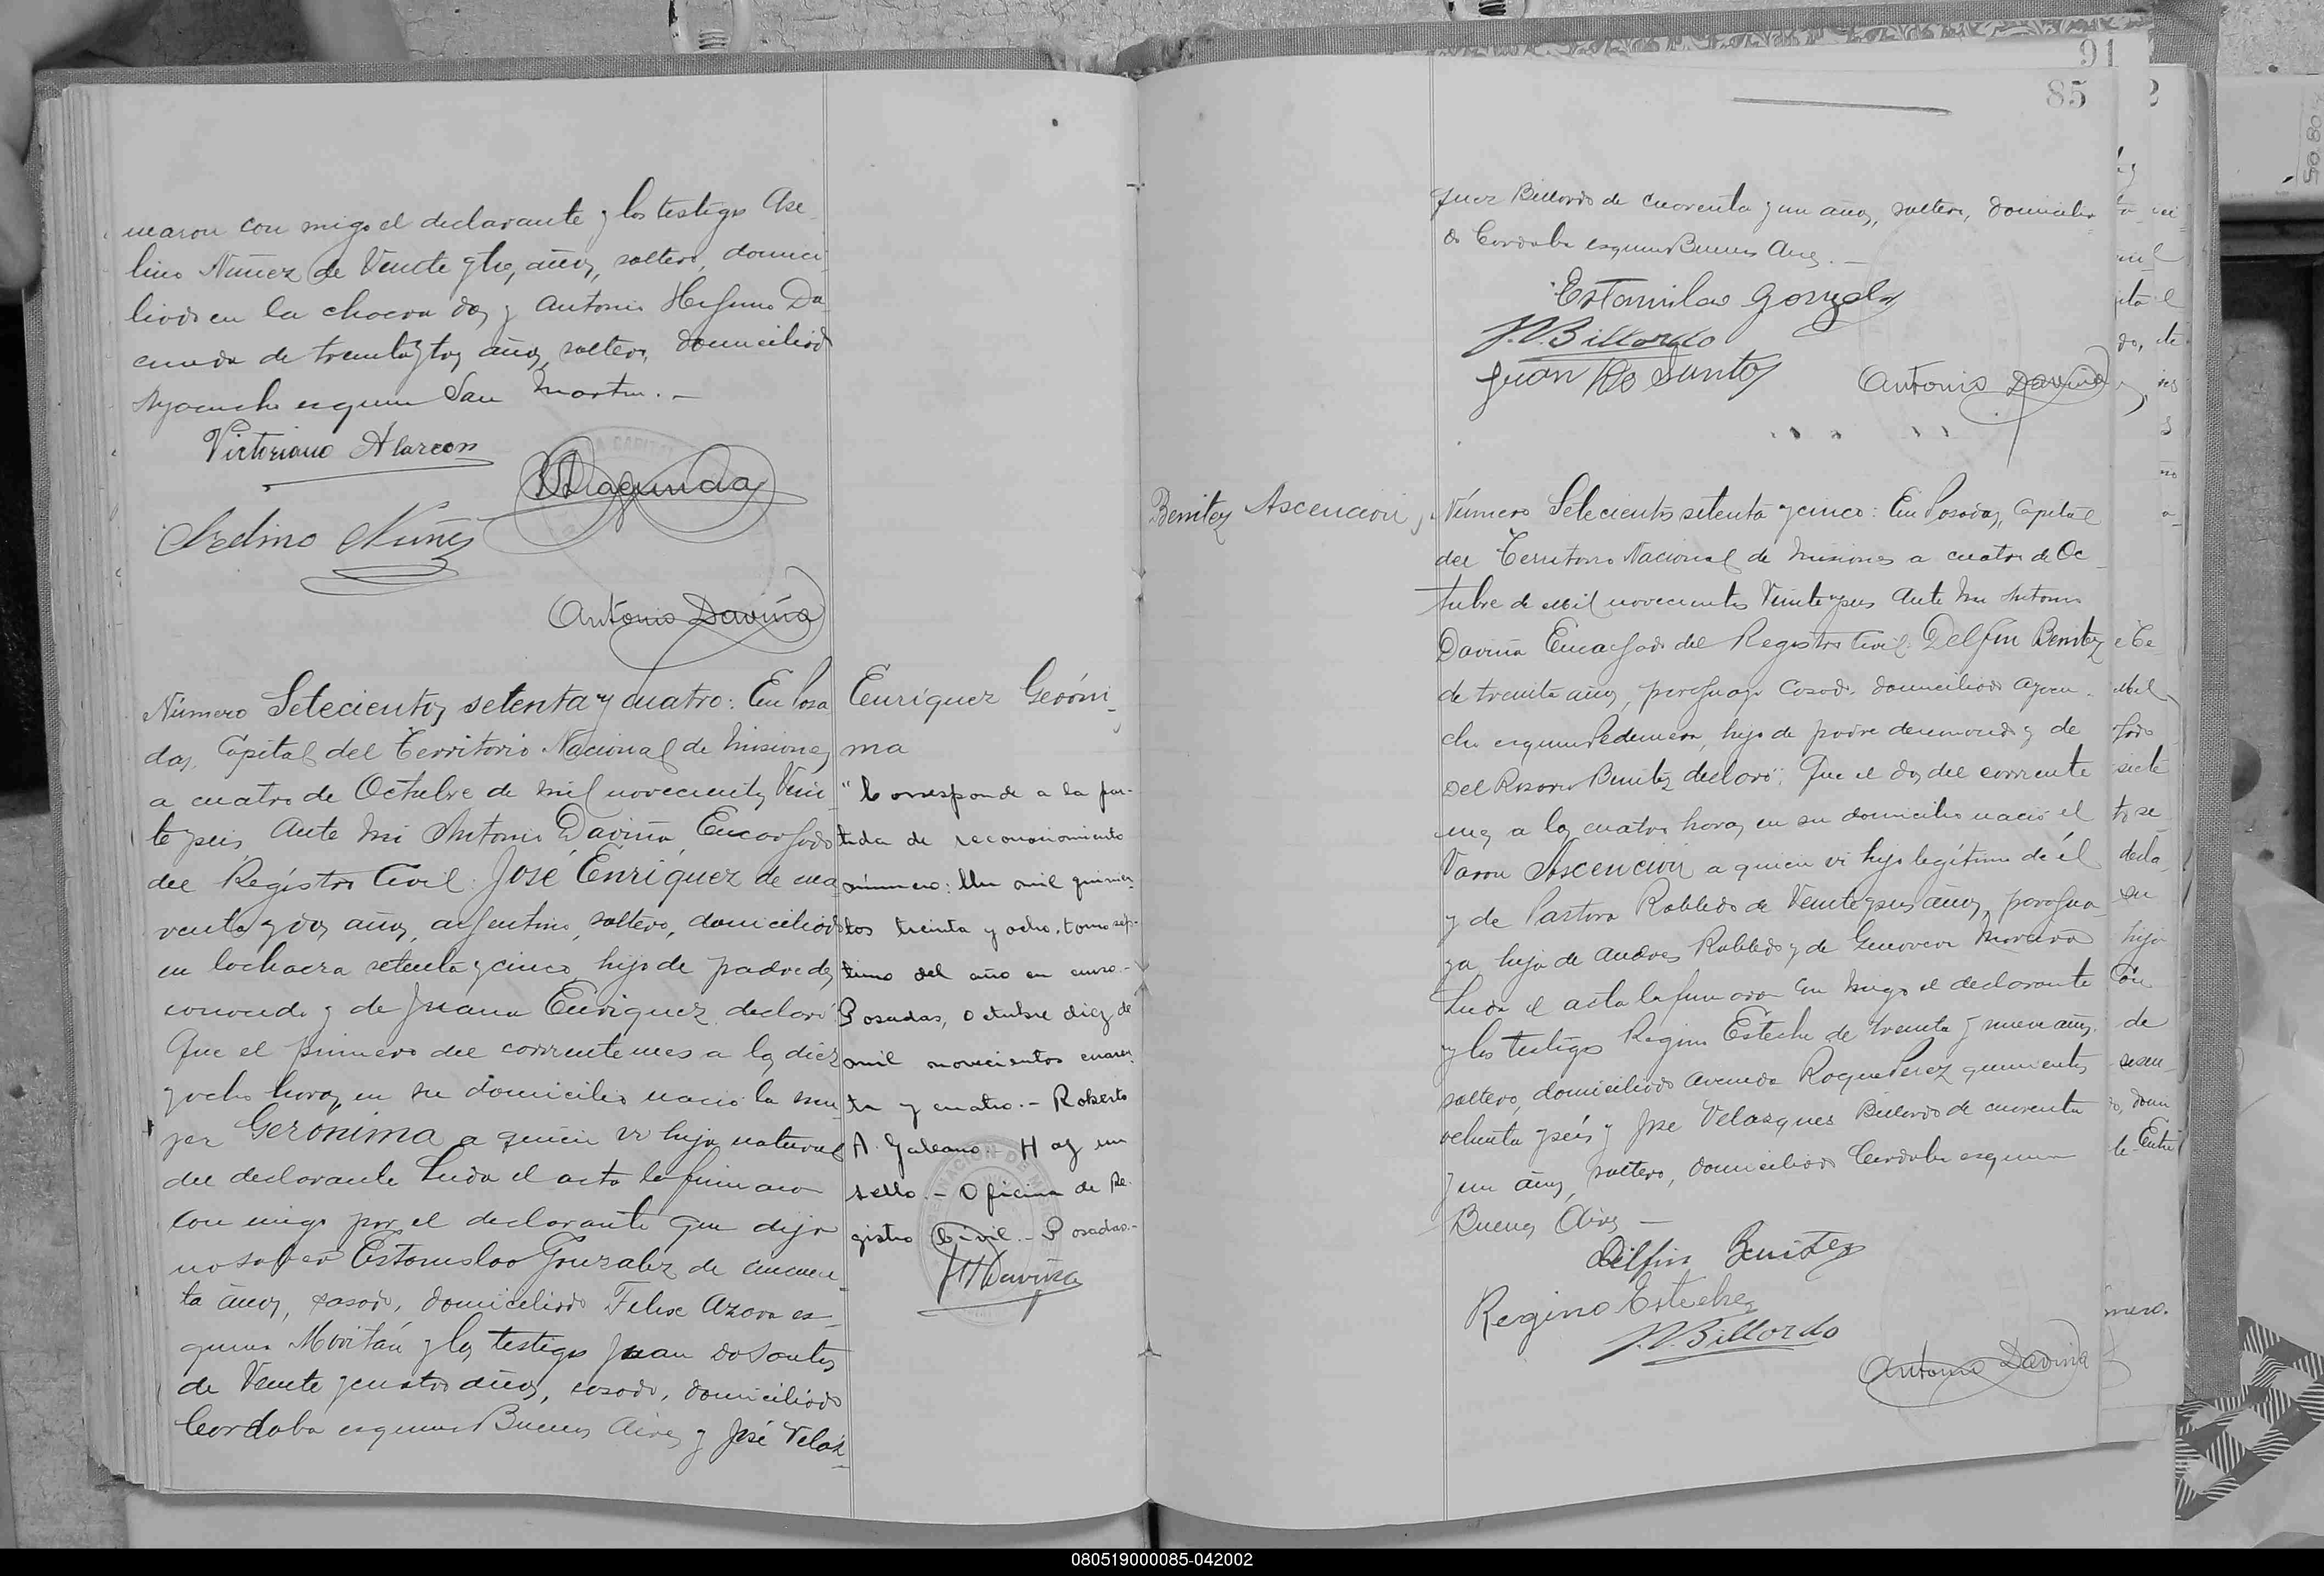 maron con migo el declarante y los testigos Ase
lino Nuñez de Veinte y tres años, soltero, domici
liado en la chacra dos y Antonio Higinio Da
cunda de treinta y tres años, soltero, domiciliado
Ayacucho esquina San Martin. —
Victoriano Alarcon
Aselino Nuñez
Antonio Daviña
Número Setecientos setenta y cuatro: En Posa
das, Capital del Territorio Nacional de Misiones
a cuatro de Octubre de mil novecientos Vein
te y seis, Ante mi Antonio Daviña, Encargado
del Registro Civil: José Enriquez de cua
renta y dos años, argentino, soltero, domiciliado
en la chacra setenta y cinco, hijo de padre des
conocido y de Juana Enriquez declaró:
Que el primero del corriente mes a las diez
y ocho horas, en su domicilio nació la mu
jer Geronima a quien vi hija natural
del declarante Leida el acta la firmaron
con migo por el declarante que dijo
no saber Estanislao Gonzalez de cincuen
ta años, casado, domiciliado Felix Azara es
quina Moritán y los testigos Juan Do Santos
de Veinte y cuatro años, casado, domiciliado
Cordoba esquina Buenos Aires y José Veláz
Enriquez Geróni
ma
"Corresponde a la par-
tida de reconocimiento
número: Un mil quinien-
tos treinta y ocho, tomo sép-
timo del año en curso.-
Posadas, Octubre diez de
mil novecientos cuaren-
ta y cuatro.- Roberto
A. Galeano.- Hay un
sello.- Oficina de Re-
gistro Civil.- Posadas.-
91
85
quez Billordo de cuarenta y un años, soltero, domicilia
do Cordoba esquina Buenos Aires. —
Estanislao Gonzalez
J. V. Billordo
Juan Do Santos
Antonio Daviña
Benitez Ascencion
Número Setecientos setenta y cinco: En Posadas, Capital
del Territorio Nacional de Misiones a cuatro de Oc
tubre de Mil novecientos Veinte y seis Ante Mi Antonio
Daviña Encargado del Registro Civil: Delfin Benitez
de treinta años, paraguayo casado, domiciliado Ayacu
cho esquina Pedernera, hijo de padre desconocido y de
Del Rosario Benitez declaró: Que el dos del corriente
mes a las cuatro horas, en su domicilio nació el
Varon Ascencion a quien vi hijo legítimo de él
y de Pastora Robledo de Veinte y seis años, paragua
ya, hija de Andres Robledo y de Genoveva Moreira
Leida el acta la firmaron con migo el declarante
y los testigos Regino Esteche de treinta y nueve años,
soltero, domiciliado Avenida Roque Perez quinientos
ochenta y seis y Jose Velazquez Billordo de cuarenta
y un años, soltero, domiciliado Cordoba esquina
Buenos Aires —
Delfin Benitez
Regino Esteche
J. V. Billordo
Antonio Daviña
080519000085-042002